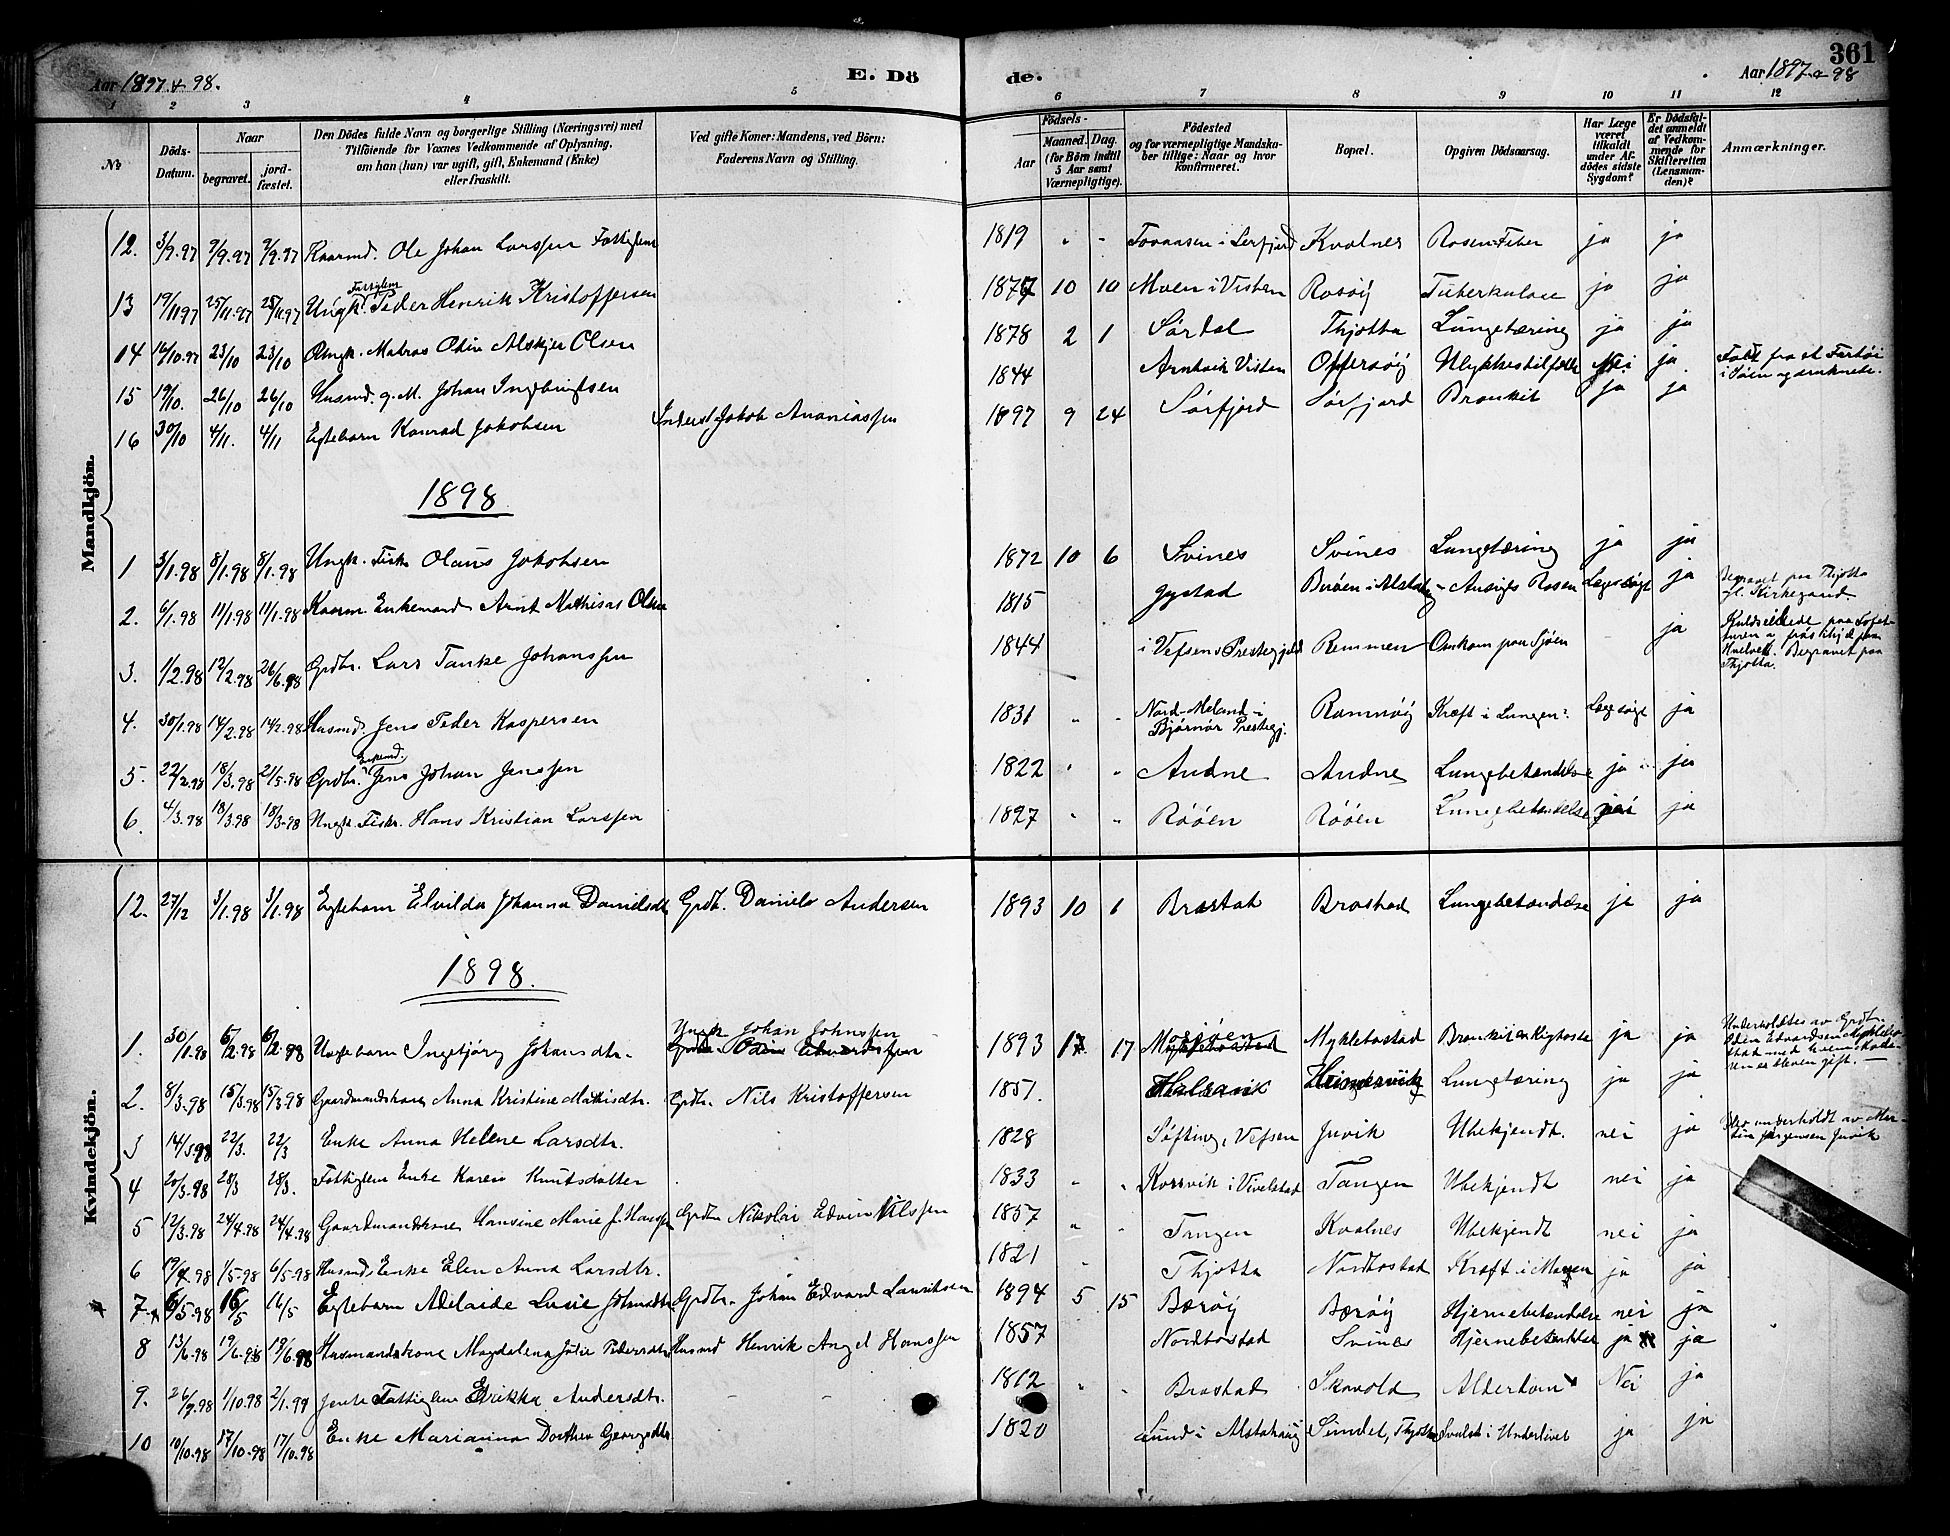 Aar 1897 & 98.
E. Dö
de.
Aar 1897 & 98
361
1 2 3 4 5 6 7 8 9 10 11 12
No
Döds-Datum.
Naar
begravet.
jord-fæstet.
Den Dödes fulde Navn og borgerlige Stilling (Næringsvei) med Tilföiende for Voxnes Vedkommende af Oplysning, om han (hun) var ugift, gift, Enkemand (Enke) eller fraskilt.
Ved gifte Koner: Mandens, ved Börn: Faderens Navn og Stilling.
Födsels-
Aar
Maaned. Dag.
(for Börn indtil 5 Aar samt Værnepligtige).
Födested og for værnepligtige Mandskaber tillige: Naar og hvor konfirmeret.
Bopæl.
Opgiven Dödsaarsag.
Har Læge været tilkaldt under Afdödes sidste Sygdom?
Er Dödsfaldet anmeldt af Vedkommende for Skifteretten (Lensmanden)?
Anmærkninger.
Mandkjön.
12. 3/9.97 7/9.97 7/9.97 Kaarmd. Ole Johan Larssen Fattiglem 1819 " - i Lerfjord Kvalnes Rosen-Feber ja ja
13 19/11 97 25/11.97 25/11.97 Ungk. Fattiglem Peder Henrik Kristoffersen 1877 10 10 Moen i Visten Rosöy Tuberkulose ja ja
14 16/10.97 23/10 23/10 Ungk. Matros Odin Alskjer Olsen 1878 2 1 Sördal Thjotta Lungetæring ja ja
15 19/10. 26/10 26/10 Husmd. g. M. Johan Ingebrigtsen 1844 Arnhvik Visten Offersöy Ulykkestilfælde Nei ja. Faldt fra et Fartöi i Söen og druknede.
16 30/10 4/11. 4/11 Egtebarn Konrad Jakobsen Inderst Jakob Ananiassen 1897 9 24 Sörfjord Sörfjord Bronkit ja ja
1898
1 3/1.98 8/1.98 8/1.98 Ungk. Fisk. Olaus Jakobsen 1872 10 6 Svines Svines Lungetæring ja ja
2. 6/1.98 11/1.98 11/1.98 Kaarm. Enkemand Arnt Mathias Olsen 1815 Gystad Buöen i Alstah. Ansigts Rosen Lægesögt ja Begravet paa Thjotta gl. Kirkegaard.
3. 1/2.98 12/2.98 26/6.98 Grdbr. Lars Tanke Johanssen 1844 i Vefsens Prestegjeld Remmen Omkom paa Sjöen ja Kuldseilede paa Lofotturen Begravet paa Thjotta.
4. 30/1.98 14/2.98 14/2.98 Husmd. Jens Peder Kaspersen 1831 " " Nord-Meland i Bjørnør Prestegj. Ramnöy Kræft i Lungen? Lægesögt ja
5. 22/2.98 18/3.98 21/5.98 Grdbr. Enkemd. Jens Johan Jenssen 1822 " " Andne Andne Lungebetændelse ja ja
6. 4/3.98 18/3.98 18/3.98 Ungk. Fiskr. Hans Kristian Larssen 1827 " " Röóen Röóen Lungebetændelse nei ja
Kvindekjön.
12. 27/12 3/1.98 3/1.98 Egtebarn Elvilda Johanna Danielsdtr Grdbr. Daniels Andersen 1893 10 1 Brastad Brastad Lungebetændelse ja ja
1898.
1. 30/1.98 6/2.98 6/2.98 Uegtebarn Ingebjörg Johansdtr. Ungk Johan Johnssen Grdbr. Odin Edvardssen 1893 12 17 Mosjöen Myklebostad Myklebostad Bronkit en Kighoste ja ja Underholdtes av Grdbr. Odin Edvardsen Myklebostad
2. 8/3.98 15/3.98 15/3.98 Gaardmandskone Anna Kristine Mathisdtr. Grdbr. Nils Kristoffersen 1851. Lungetæring ja ja
3 14/3.98 22/3. 22/3 Enke Anna Helene Larsdtr. 1828 Söfting, Vefsen Juvik Ubekjendt. nei ja underholdt av Martin Jörgensen Juvik
4 20/3.98 28/3 28/3. Fattiglem Enke Karen Knutsdatter 1833 " " Korsvik i Vivelstad Tangen Ubekjendt nei ja
5 12/3.98 24/4.98 24/4.98 Gaardmandskone Hansine Marie f. Hanssen Grdbr. Nikolai Edvin Nilssen 1857 " " Tangen Kvalnes Ubekjendt nei ja
6 19/4.98 1/5.98 6/5.98 Husmds Enke Elen Anna Larsdtr. 1821 " Thjotta Nordbostad Kræft i Maven ja ja
7 6/5.98 16/5 16/5 Egtebarn Adelaide Lusie Johansdtr Grdbr. Johan Edvard Lauritsen 1894 5 15 Bæröy Bæröy Hjernebetændelse nei ja
8 13/6.98 19/6.98 19/6.98 Husmandskone Magdalena Julie Pedersdtr Husmd Henrik Angel Hanssen 1857 Nordbostad Svines Hjernebetændelse ja ja
9. 26/9.98 1/10.98 2/1.99 Jente Fattiglem Erikka Andersdtr. - - 1812 " " Brastad Skavold Alderdom Nei ja
10 10/10.98 17/10.98 17/10.98 Enke Marianna Dorthea Georgsdtr 1820 Lund i Alstahaug Sundet, Thjotta Svulst i Underlivet ja ja